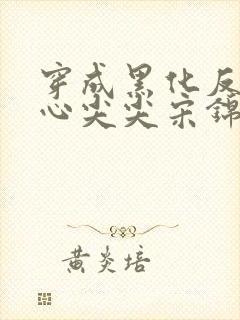 穿成黑化反
心尖尖宋锦
黄炎培